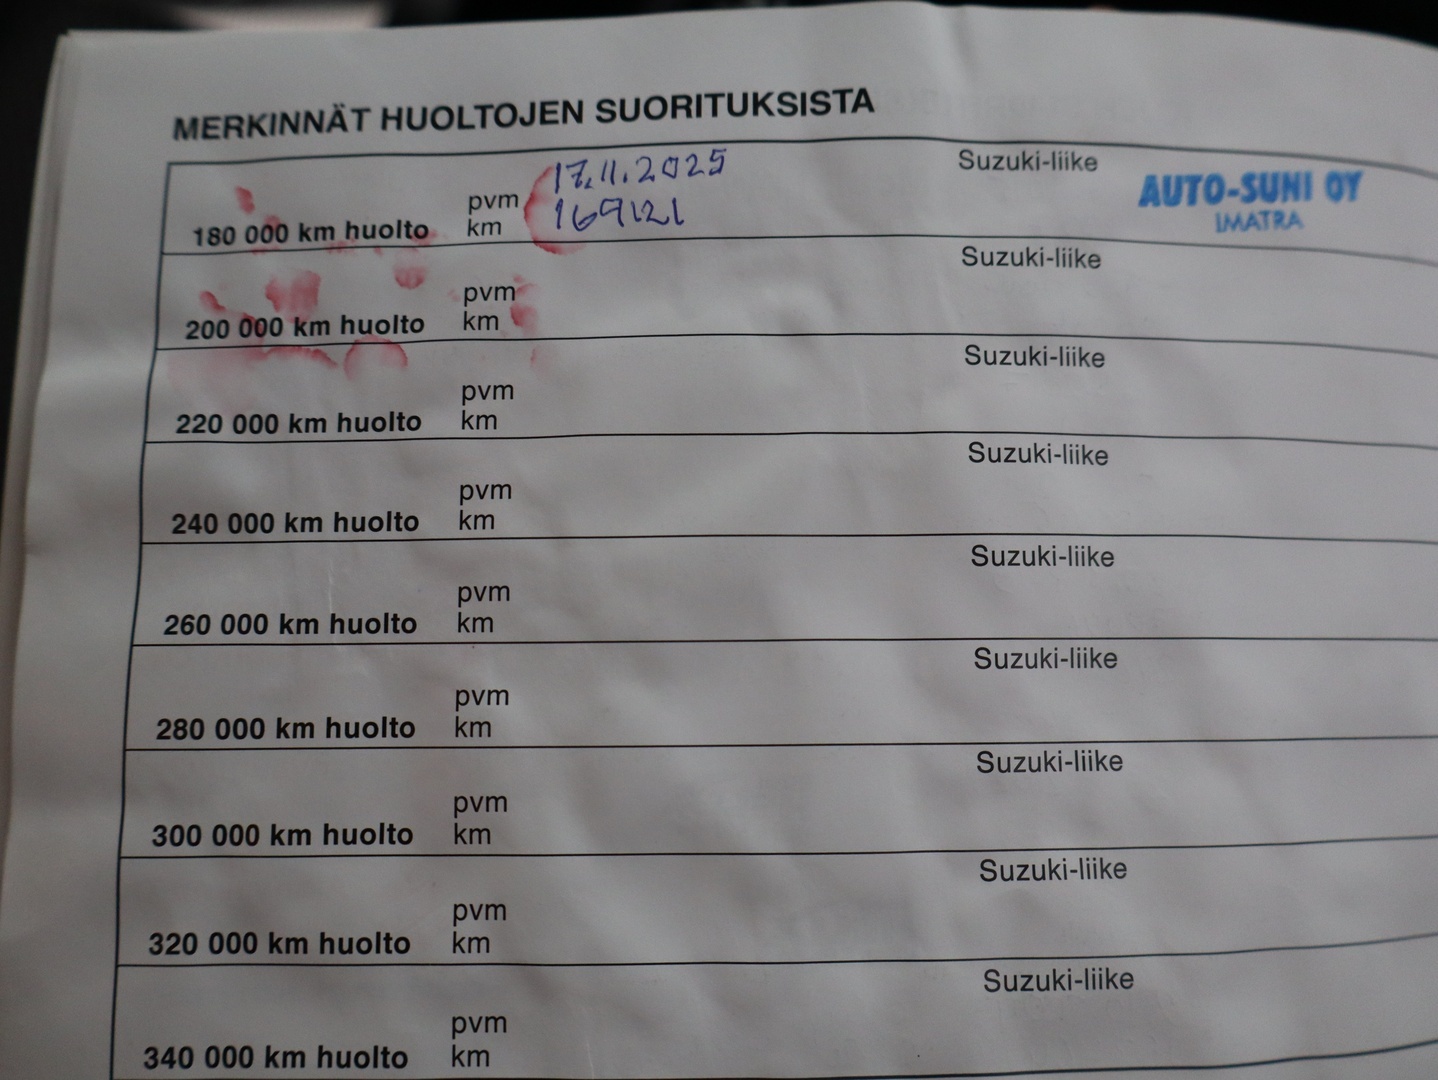 MERKINNÄT HUOLTOJEN SUORITUKSISTA
180 000 km huolto
pvm 17.11.2025
km 169121
Suzuki-liike
AUTO-SUNI OY
IMATRA
200 000 km huolto
pvm
km
Suzuki-liike
220 000 km huolto
pvm
km
Suzuki-liike
240 000 km huolto
pvm
km
Suzuki-liike
260 000 km huolto
pvm
km
Suzuki-liike
280 000 km huolto
pvm
km
Suzuki-liike
300 000 km huolto
pvm
km
Suzuki-liike
320 000 km huolto
pvm
km
Suzuki-liike
340 000 km huolto
pvm
km
Suzuki-liike